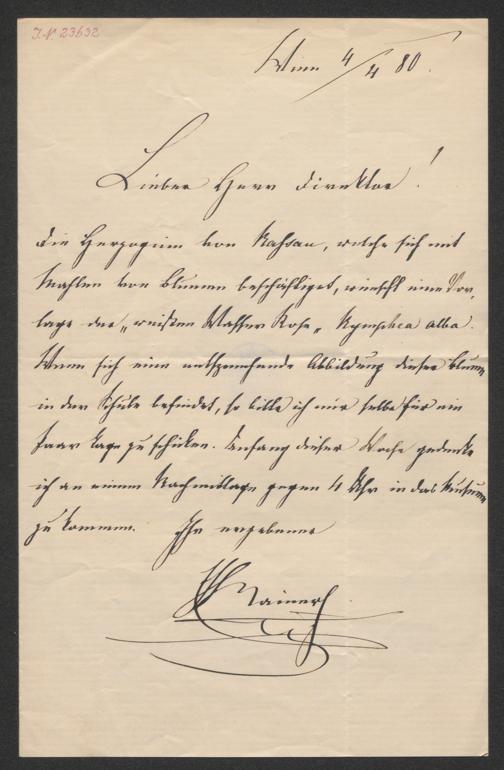 I.N. 23632
Wien 4/4 80.
Lieber Herr Direktor!
Die Herzogin von Nassau, welche sich mit
Mahlen von Blumen beschäftiget, wünscht eine Vor,
lage der „weißen Wasser Rose„ Nymphea alba.
Wenn sich eine entsprechende Abbildung dieser Blume
in der Schule befindet, so bitte ich mir selbe für ein
Paar Tage zu schicken. Anfang dieser Woche gedenke
ich an einem Nachmittage gegen 4 Uhr in das Museum
zu kommen. Ihr ergebener
Rainer